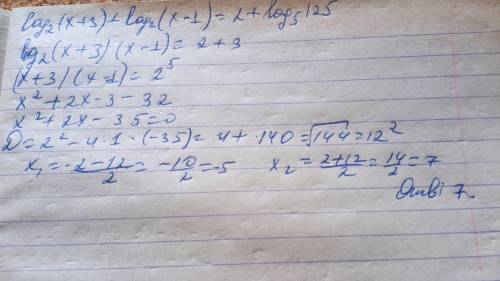 log₂(x+3)+log₂(x-1)=2+log₅125
log₂(x+3)(x-1)=2+3
(x+3)(x-1)=2⁵
x²+2x-3-32
x²+2x-35=0
D=2²-4·1·(-35)=4+·140=√144=12²
x₁=(-2-12)/2=-10/2=-5 x₂=(2+12)/2=14/2=7
7